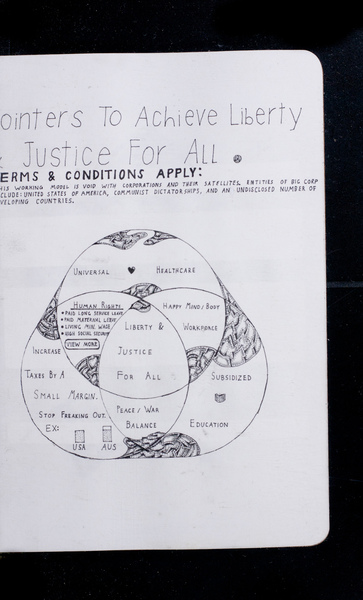 ointers To Achieve Liberty
& Justice For All.
ERMS & CONDITIONS APPLY:
HIS WORKING MODEL IS VOID WITH CORPORATIONS AND THEIR SATELLITES, ENTITIES OF BIG CORP
CLUDE: UNITED STATES OF AMERICA, COMMUNIST DICTATORSHIPS, AND AN UNDISCLOSED NUMBER OF
VELOPING COUNTRIES.
UNIVERSAL HEALTHCARE
HUMAN RIGHTS
• PAID LONG SERVICE LEAVE
• PAID MATERNAL LEAVE
• LIVING MIN. WAGE
• HIGH SOCIAL SECURITY
VIEW MORE
HAPPY MIND/BODY
WORKFORCE
LIBERTY &
JUSTICE
FOR ALL
INCREASE
TAXES BY A
SMALL MARGIN.
STOP FREAKING OUT.
EX:
USA AUS
SUBSIDIZED
EDUCATION
PEACE/WAR
BALANCE